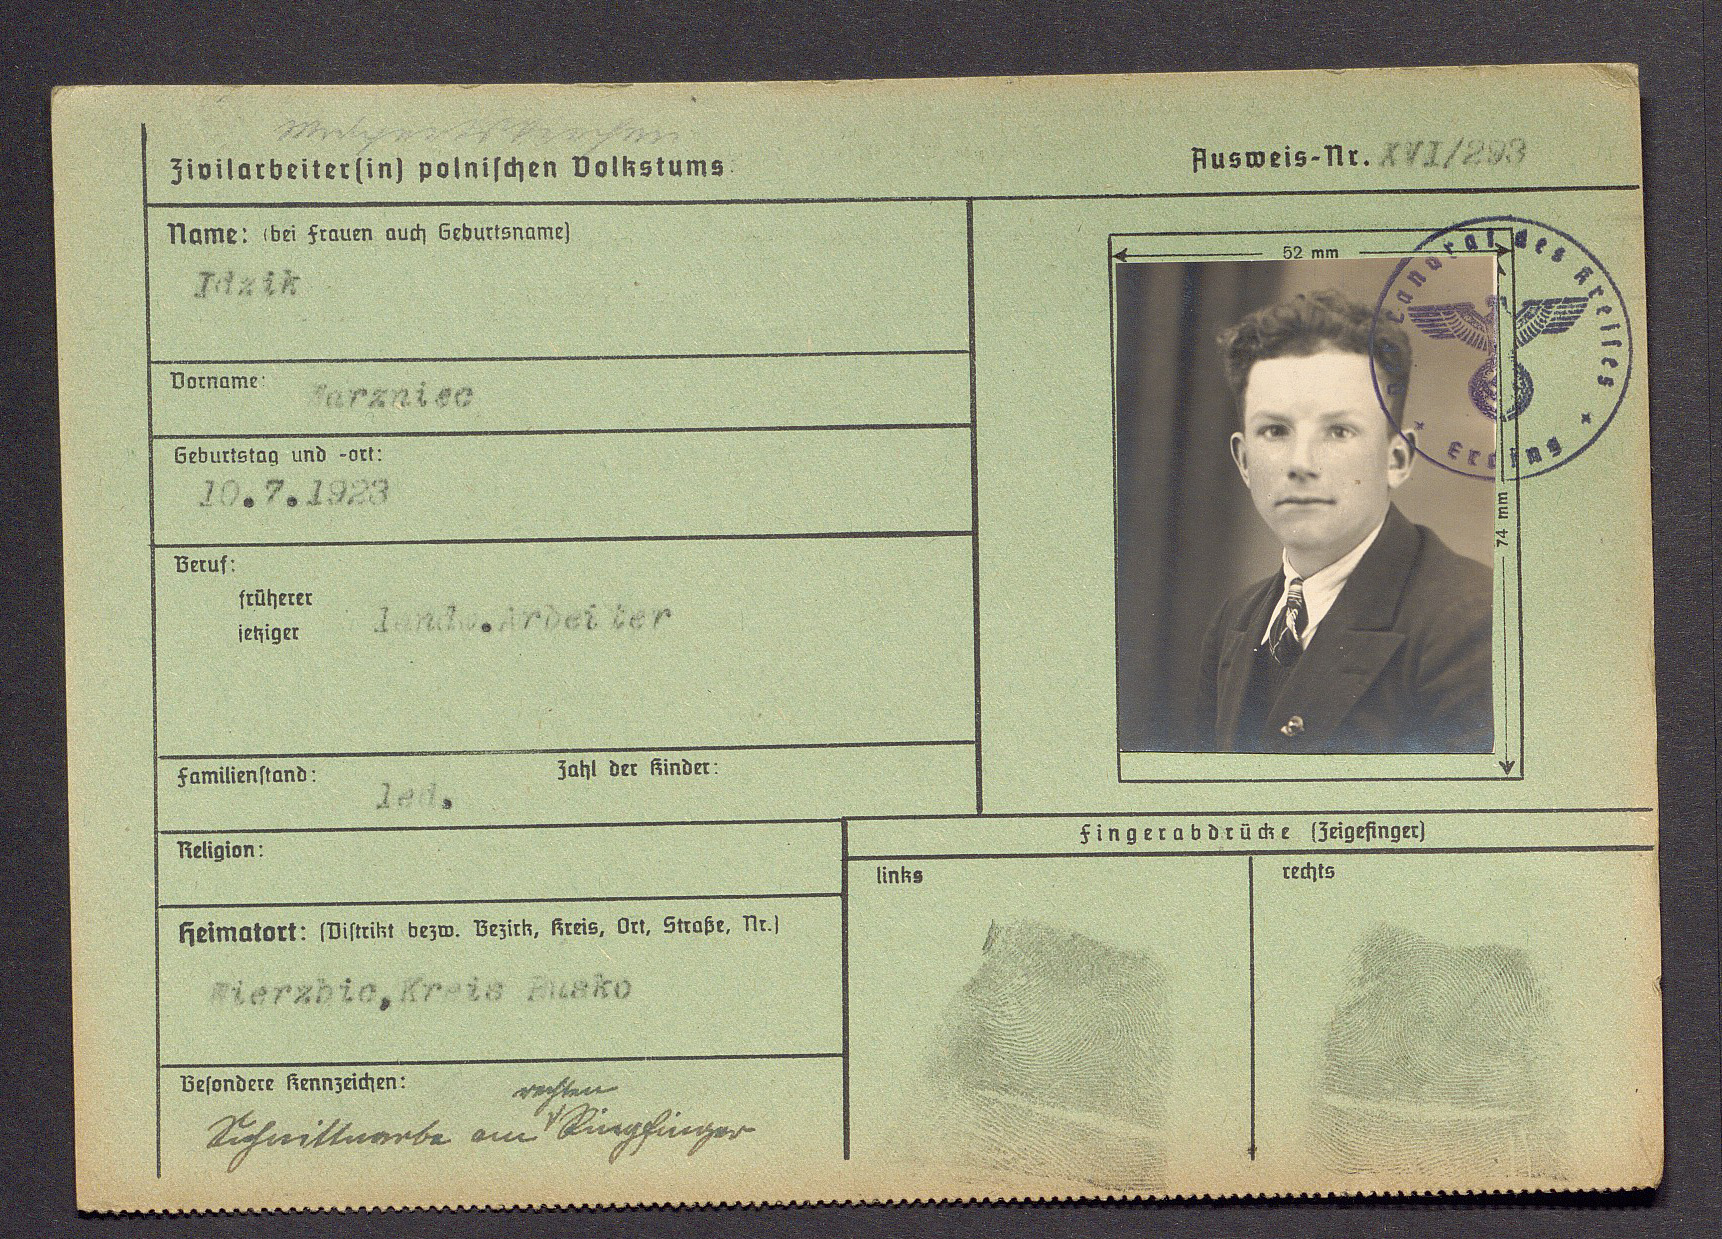 Zivilarbeiter(in) polnischen Volkstums
Ausweis-Nr. XVI/293
Name: (bei Frauen auch Geburtsname)
Idzik
Vorname:
Geburtstag und -ort:
10.7.1923
Beruf:
früherer
jetziger
landw.Arbeiter
Familienstand:
Zahl der Kinder:
led.
Religion:
Heimatort: (Distrikt bezw. Bezirk, Kreis, Ort, Straße, Nr.)
Wierzbic, Kreis Busko
Besondere Kennzeichen:
rechten
Schnittnarbe am Ringfinger
52 mm
74 mm
Landrat des Kreises
* Erding *
Fingerabdrücke (Zeigefinger)
links
rechts